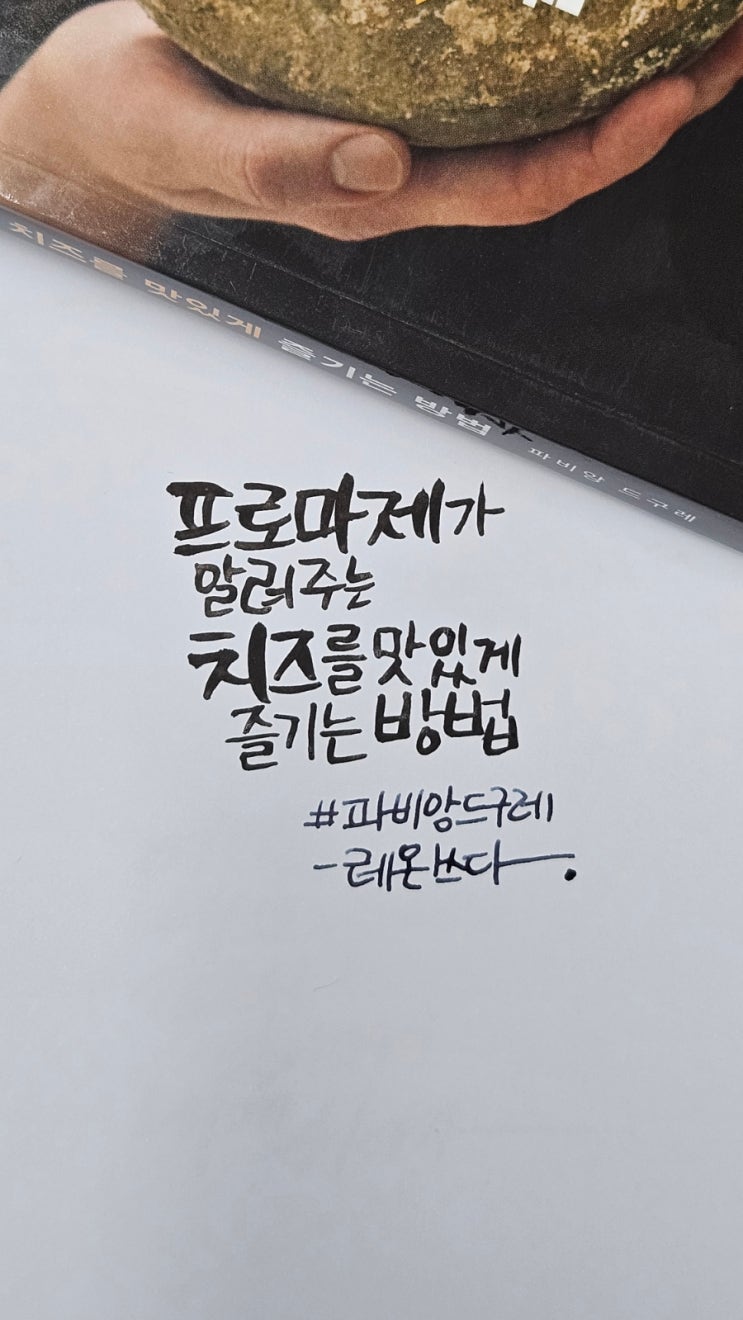 치즈를 맛있게 즐기는 방법 파비앙 드구레
프로마제가
알려주는
치즈를 맛있게
즐기는 방법
#파비앙드구레
-레몬쓰다